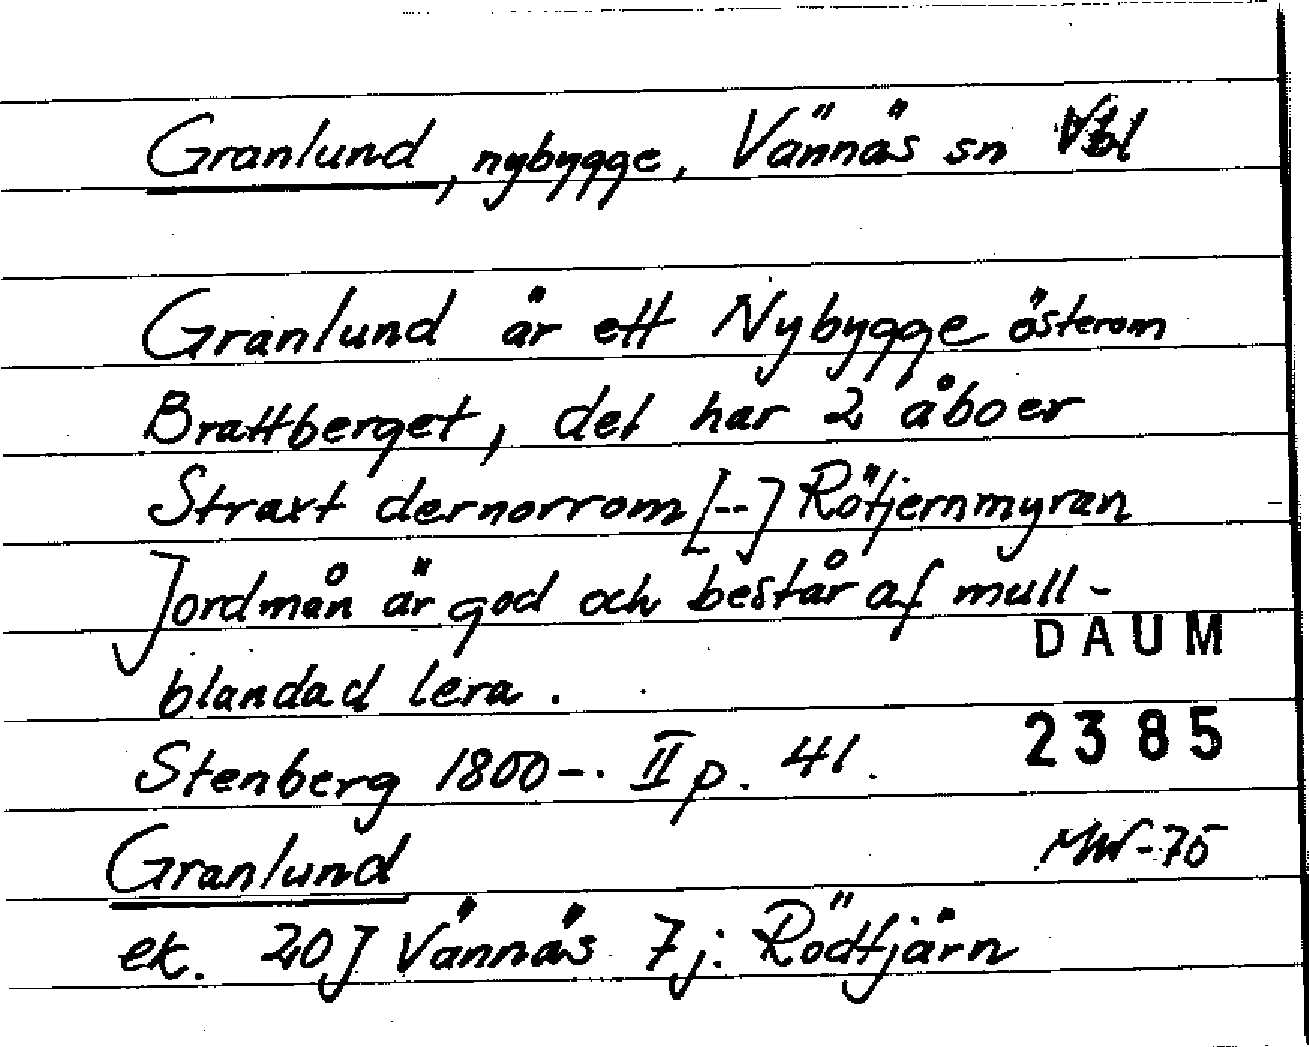 Granlund, nybygge, Vännäs sn Vbl
Granlund är ett Nybygge österom
Brattberget, det har 2 åboer
Straxt dernorrom [--] Rötjernmyran
Jordmån är god och består af mull-
DAUM
blandad lera.
2385
Stenberg 1800-. II p. 41.
MW-75
Granlund
ek. 20J Vännäs 7j: Rödtjärn